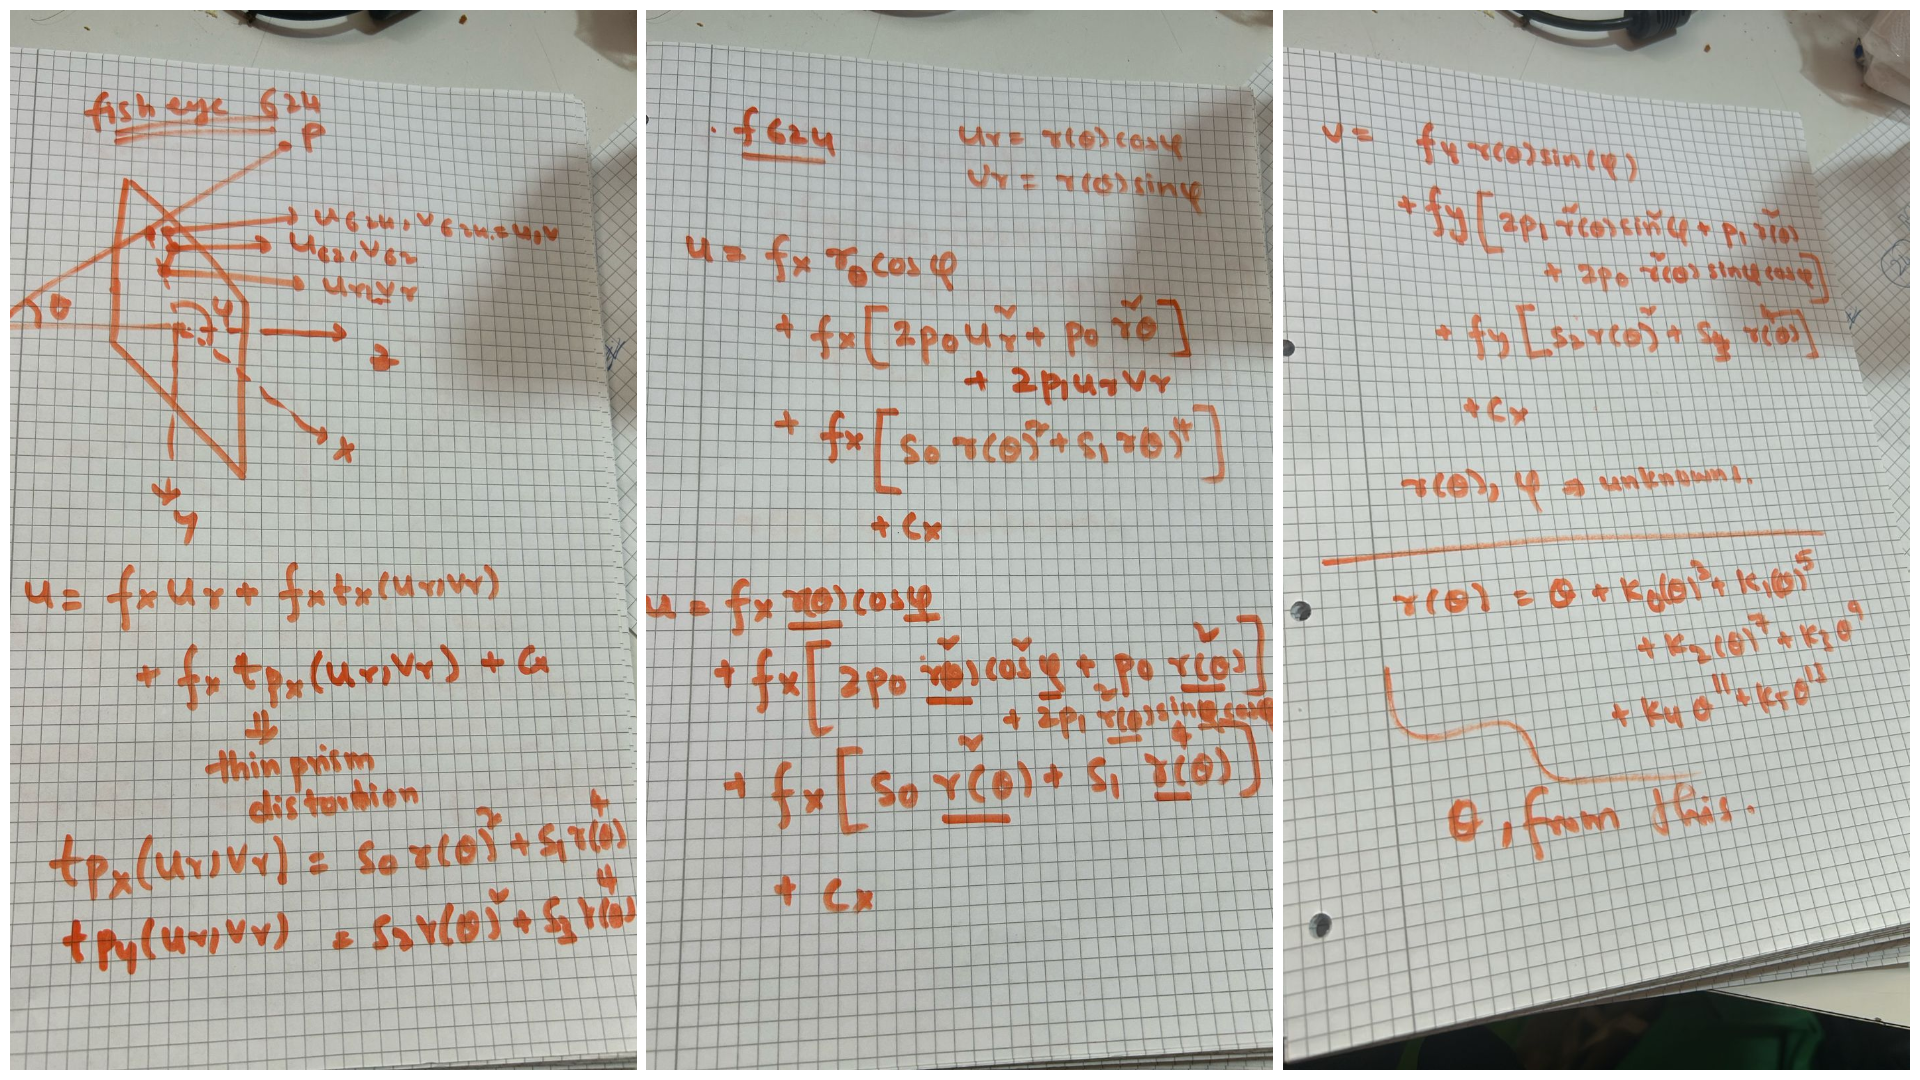 fish eye 624
P
u624, v624 = u, v
u62, v62
ur, vr
θ
φ
z
x
y
u = fx ur + fx tx(ur, vr)
+ fx tpx(ur, vr) + cx
⇓
thin prism
distortion
tpx(ur, vr) = s0 r(θ)² + s1 r(θ)⁴
tpy(ur, vr) = s2 r(θ)² + s3 r(θ)⁴
. f624
ur = r(θ) cosφ
vr = r(θ) sinφ
u = fx rθ cosφ
+ fx [2p0 ur² + p0 rθ²]
+ 2p1 ur vr
+ fx [s0 r(θ)² + s1 r(θ)⁴]
+ cx
u = fx r(θ) cosφ
+ fx [2p0 r²(θ) cos²φ + p0 r²(θ)]
+ 2p1 r²(θ) sinφ cosφ
+ fx [s0 r²(θ) + s1 r⁴(θ)]
+ cx
v = fy r(θ) sin(φ)
+ fy [2p1 r²(θ) sin²φ + p1 r²(θ)
+ 2p0 r²(θ) sinφ cosφ]
+ fy [s2 r(θ)² + s3 r(θ)⁴]
+ cx
r(θ), φ ⇒ unknowns.
r(θ) = θ + k0(θ)³ + k1(θ)⁵
+ k2(θ)⁷ + k3 θ⁹
+ k4 θ¹¹ + k5 θ¹³
θ, from this.